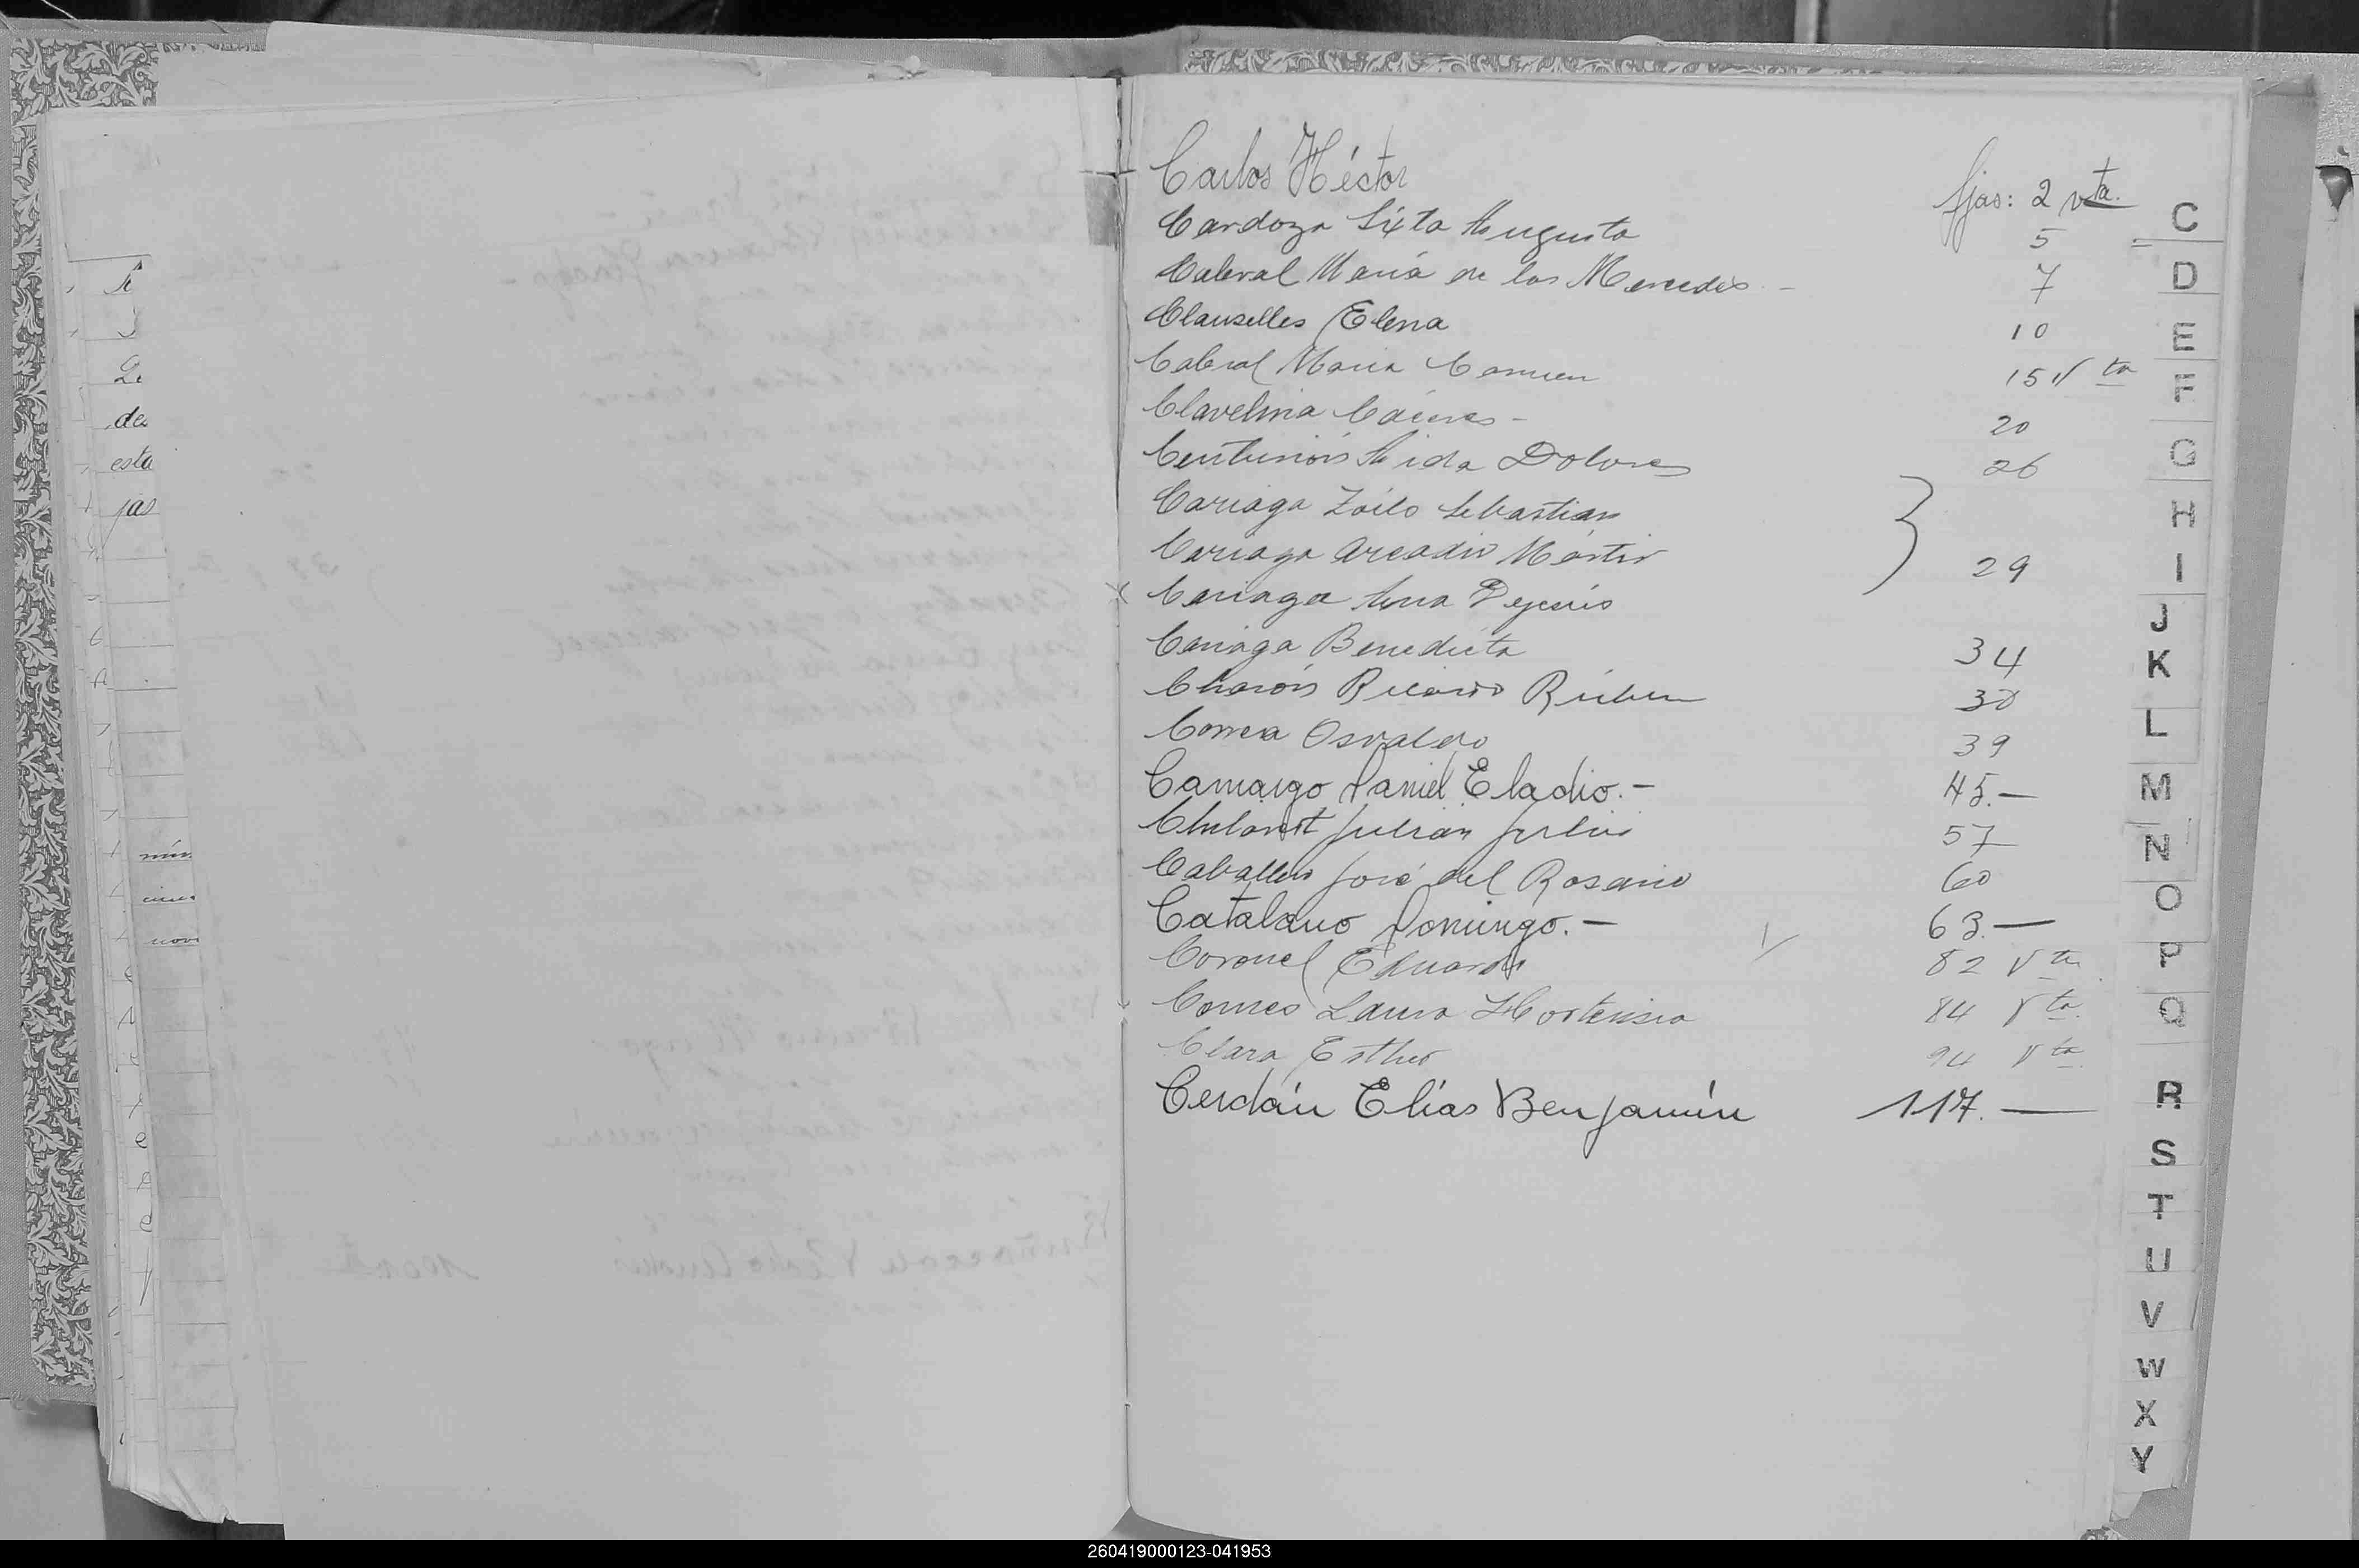 Carlos Héctor fjas: 2 vta.
Cardozo Sixto Augusto 5
Cabral María de las Mercedes - 7
Clauselles Elena 10
Cabral María Carmen 15 vta
Clavelina Cáceres - 20
Centurión Aida Dolores 26
Cariaga Zoilo Sebastian
Cariaga Arcadio Mártir 29
Cariaga Ana Dejesús
Cariaga Benedicta 34
Charón Ricardo Rúben
Correa Osvaldo 39
Camargo Daniel Eladio.- 45.-
Julián 57
Caballero José del Rosario 60
Catalano Domingo.- 63.-
Coronel Eduardo 82 vta
Laura Hortensia 84 vta.
Clara Esther 94 vta.
Cerdán Elías Benjamín 117.-
C
D
E
F
G
H
I
J
K
L
M
N
O
P
Q
R
S
T
U
V
W
X
Y
de
esta
jas
260419000123-041953